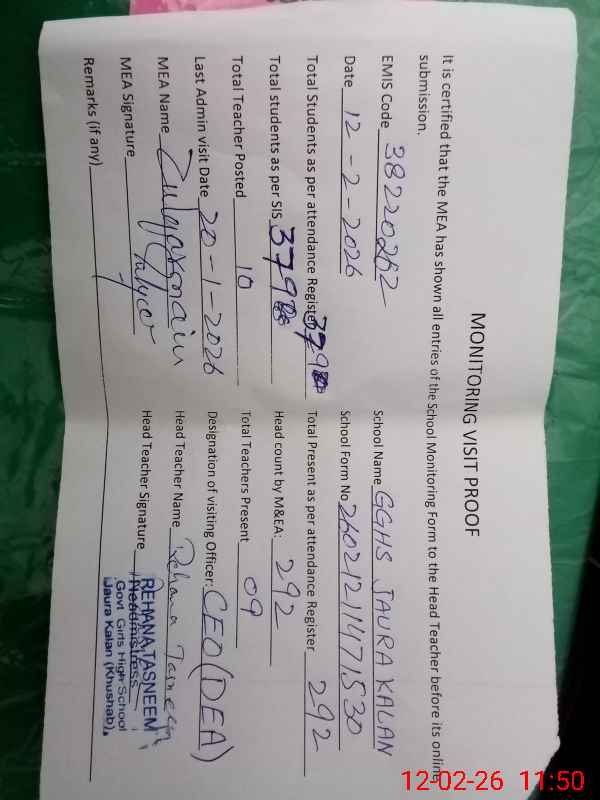 MONITORING VISIT PROOF
It is certified that the MEA has shown all entries of the School Monitoring Form to the Head Teacher before its online
submission.
EMIS Code 38220262 School Name GGHS JAURA KALAN
Date 12-2-2026 School Form No
Total Students as per attendance Register 379 Total Present as per attendance Register 292
Total students as per SIS 379 Head count by M&EA: 292
Total Teacher Posted 10 Total Teachers Present 09
Last Admin visit Date 20-1-2026 Designation of visiting Officer: CEO (DEA)
MEA Name Head Teacher Name Rehana Tasneem
MEA Signature Head Teacher Signature
Remarks (if any)
REHANA TASNEEM
Headmistress
Govt Girls High School
Jaura Kalan (Khushab)
12-02-26 11:50